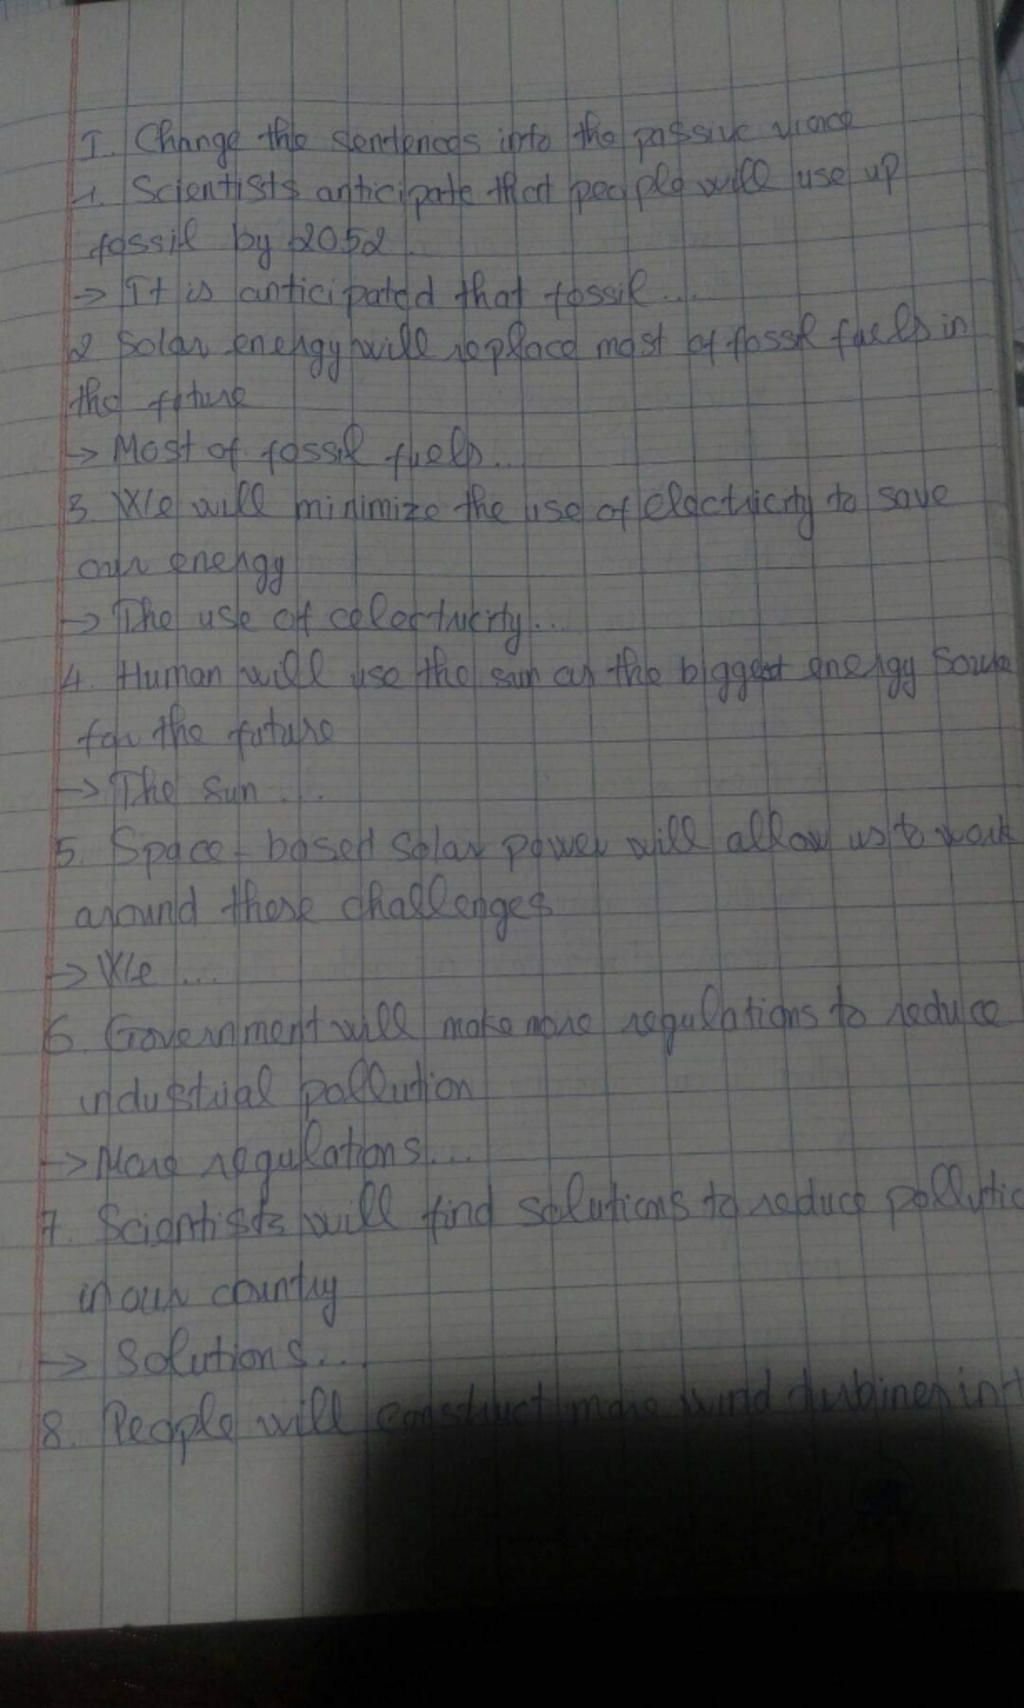 I. Change the sentences into the passive vioce
1. Scientists anticipate that people will use up
fossil by 2052.
→ It is anticipated that fossil...
2 Solar energy will replace most of fossil fuels in
the future
→ Most of fossil fuels...
3. We will minimize the use of electricity to save
our energy
→ The use of celectricity...
4. Human will use the sun as the biggest energy source
for the future
→ The sun...
5. Space-based solar power will allow us to work
around these challenges
→ We...
6. Government will make more regulations to reduce
industrial pollution
→ More regulations...
7. Scientists will find solutions to reduce pollutio
in our country
→ Solutions...
8. People will construct more wind turbines in t